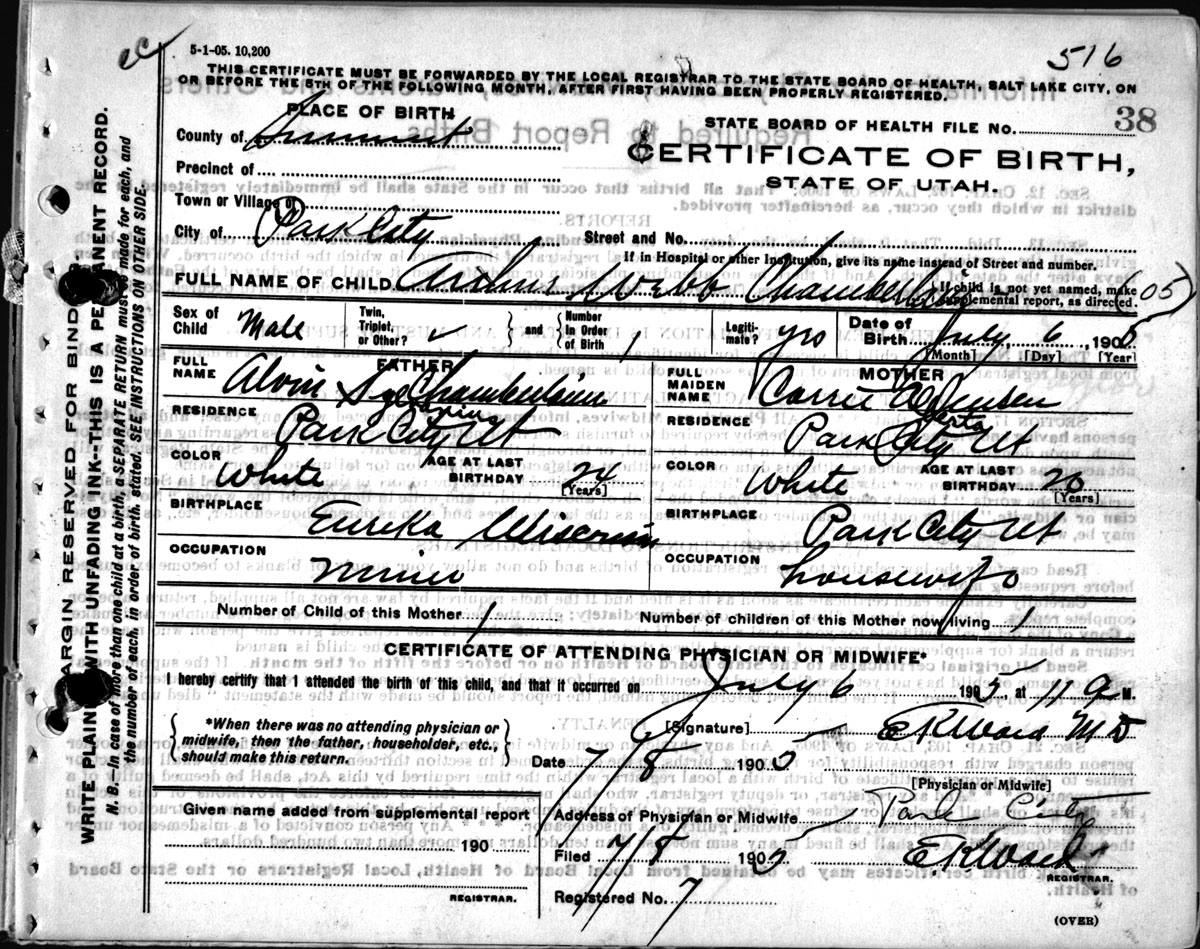 5-1-05. 10,200
516
THIS CERTIFICATE MUST BE FORWARDED BY THE LOCAL REGISTRAR TO THE STATE BOARD OF HEALTH, SALT LAKE CITY, ON
OR BEFORE THE 5TH OF THE FOLLOWING MONTH, AFTER FIRST HAVING BEEN PROPERLY REGISTERED.
PLACE OF BIRTH
STATE BOARD OF HEALTH FILE NO. 38
County of Summit
CERTIFICATE OF BIRTH,
STATE OF UTAH.
Precinct of
Town or Village of
City of Park City
Street and No.
If in Hospital or other Institution, give its name instead of Street and number.
FULL NAME OF CHILD Arthur Webb Chamberlin
If child is not yet named, make
supplemental report, as directed.
(05)
Sex of Child Male
Twin, Triplet, or Other?
and
Number in Order of Birth 1
Legitimate? yes
Date of Birth July 6 1905
[Month] [Day] [Year]
FATHER
FULL NAME Alvin Chamberlain
RESIDENCE Park City Ut
COLOR White
AGE AT LAST BIRTHDAY 24
[Years]
BIRTHPLACE Eureka Wisconsin
OCCUPATION Miner
MOTHER
FULL MAIDEN NAME Carrie Jensen
RESIDENCE Park City Ut
COLOR White
AGE AT LAST BIRTHDAY 20
[Years]
BIRTHPLACE Park City Ut
OCCUPATION housewife
Number of Child of this Mother 1
Number of children of this Mother now living 1
CERTIFICATE OF ATTENDING PHYSICIAN OR MIDWIFE*
I hereby certify that I attended the birth of this child, and that it occurred on July 6 1905, at 11 a M.
*When there was no attending physician or
midwife, then the father, householder, etc.,
should make this return.
[Signature] E K Ward M D
Date 7/8 1905
[Physician or Midwife]
Given name added from supplemental report
190
REGISTRAR.
Address of Physician or Midwife Park City
Filed 7/8 1905 E K Ward
REGISTRAR.
Registered No. 7
(OVER)
MARGIN RESERVED FOR BINDING
WRITE PLAINLY WITH UNFADING INK--THIS IS A PERMANENT RECORD.
N. B.—In case of more than one child at a birth, a SEPARATE RETURN must be made for each, and
the number of each, in order of birth, stated. SEE INSTRUCTIONS ON OTHER SIDE.